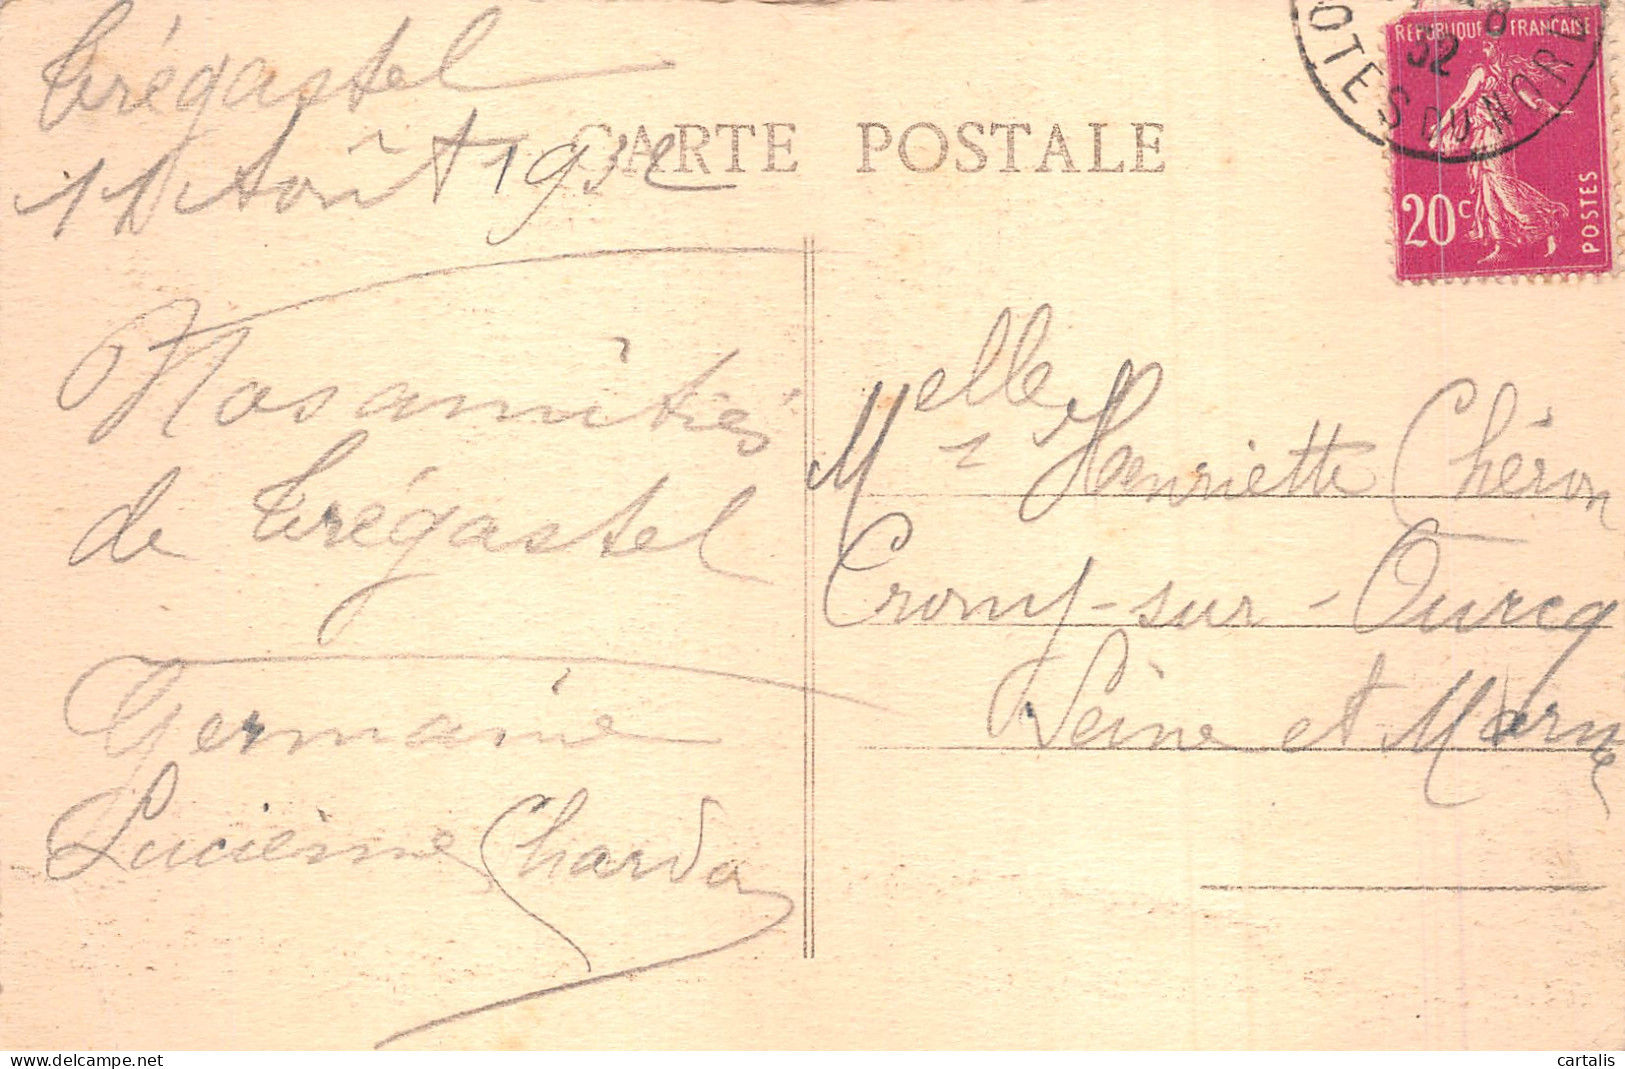 Trégastel
11 Août 1932
CARTE POSTALE
Nos amitiés
de Trégastel
Germaine
Lucienne Charda
OTES DU NORD
8
32
REPUBLIQUE FRANÇAISE
20c
POSTES
Melle Henriette Chéron
Crouy-sur-Ourcq
Seine et Marne
delcampe.net
cartalis